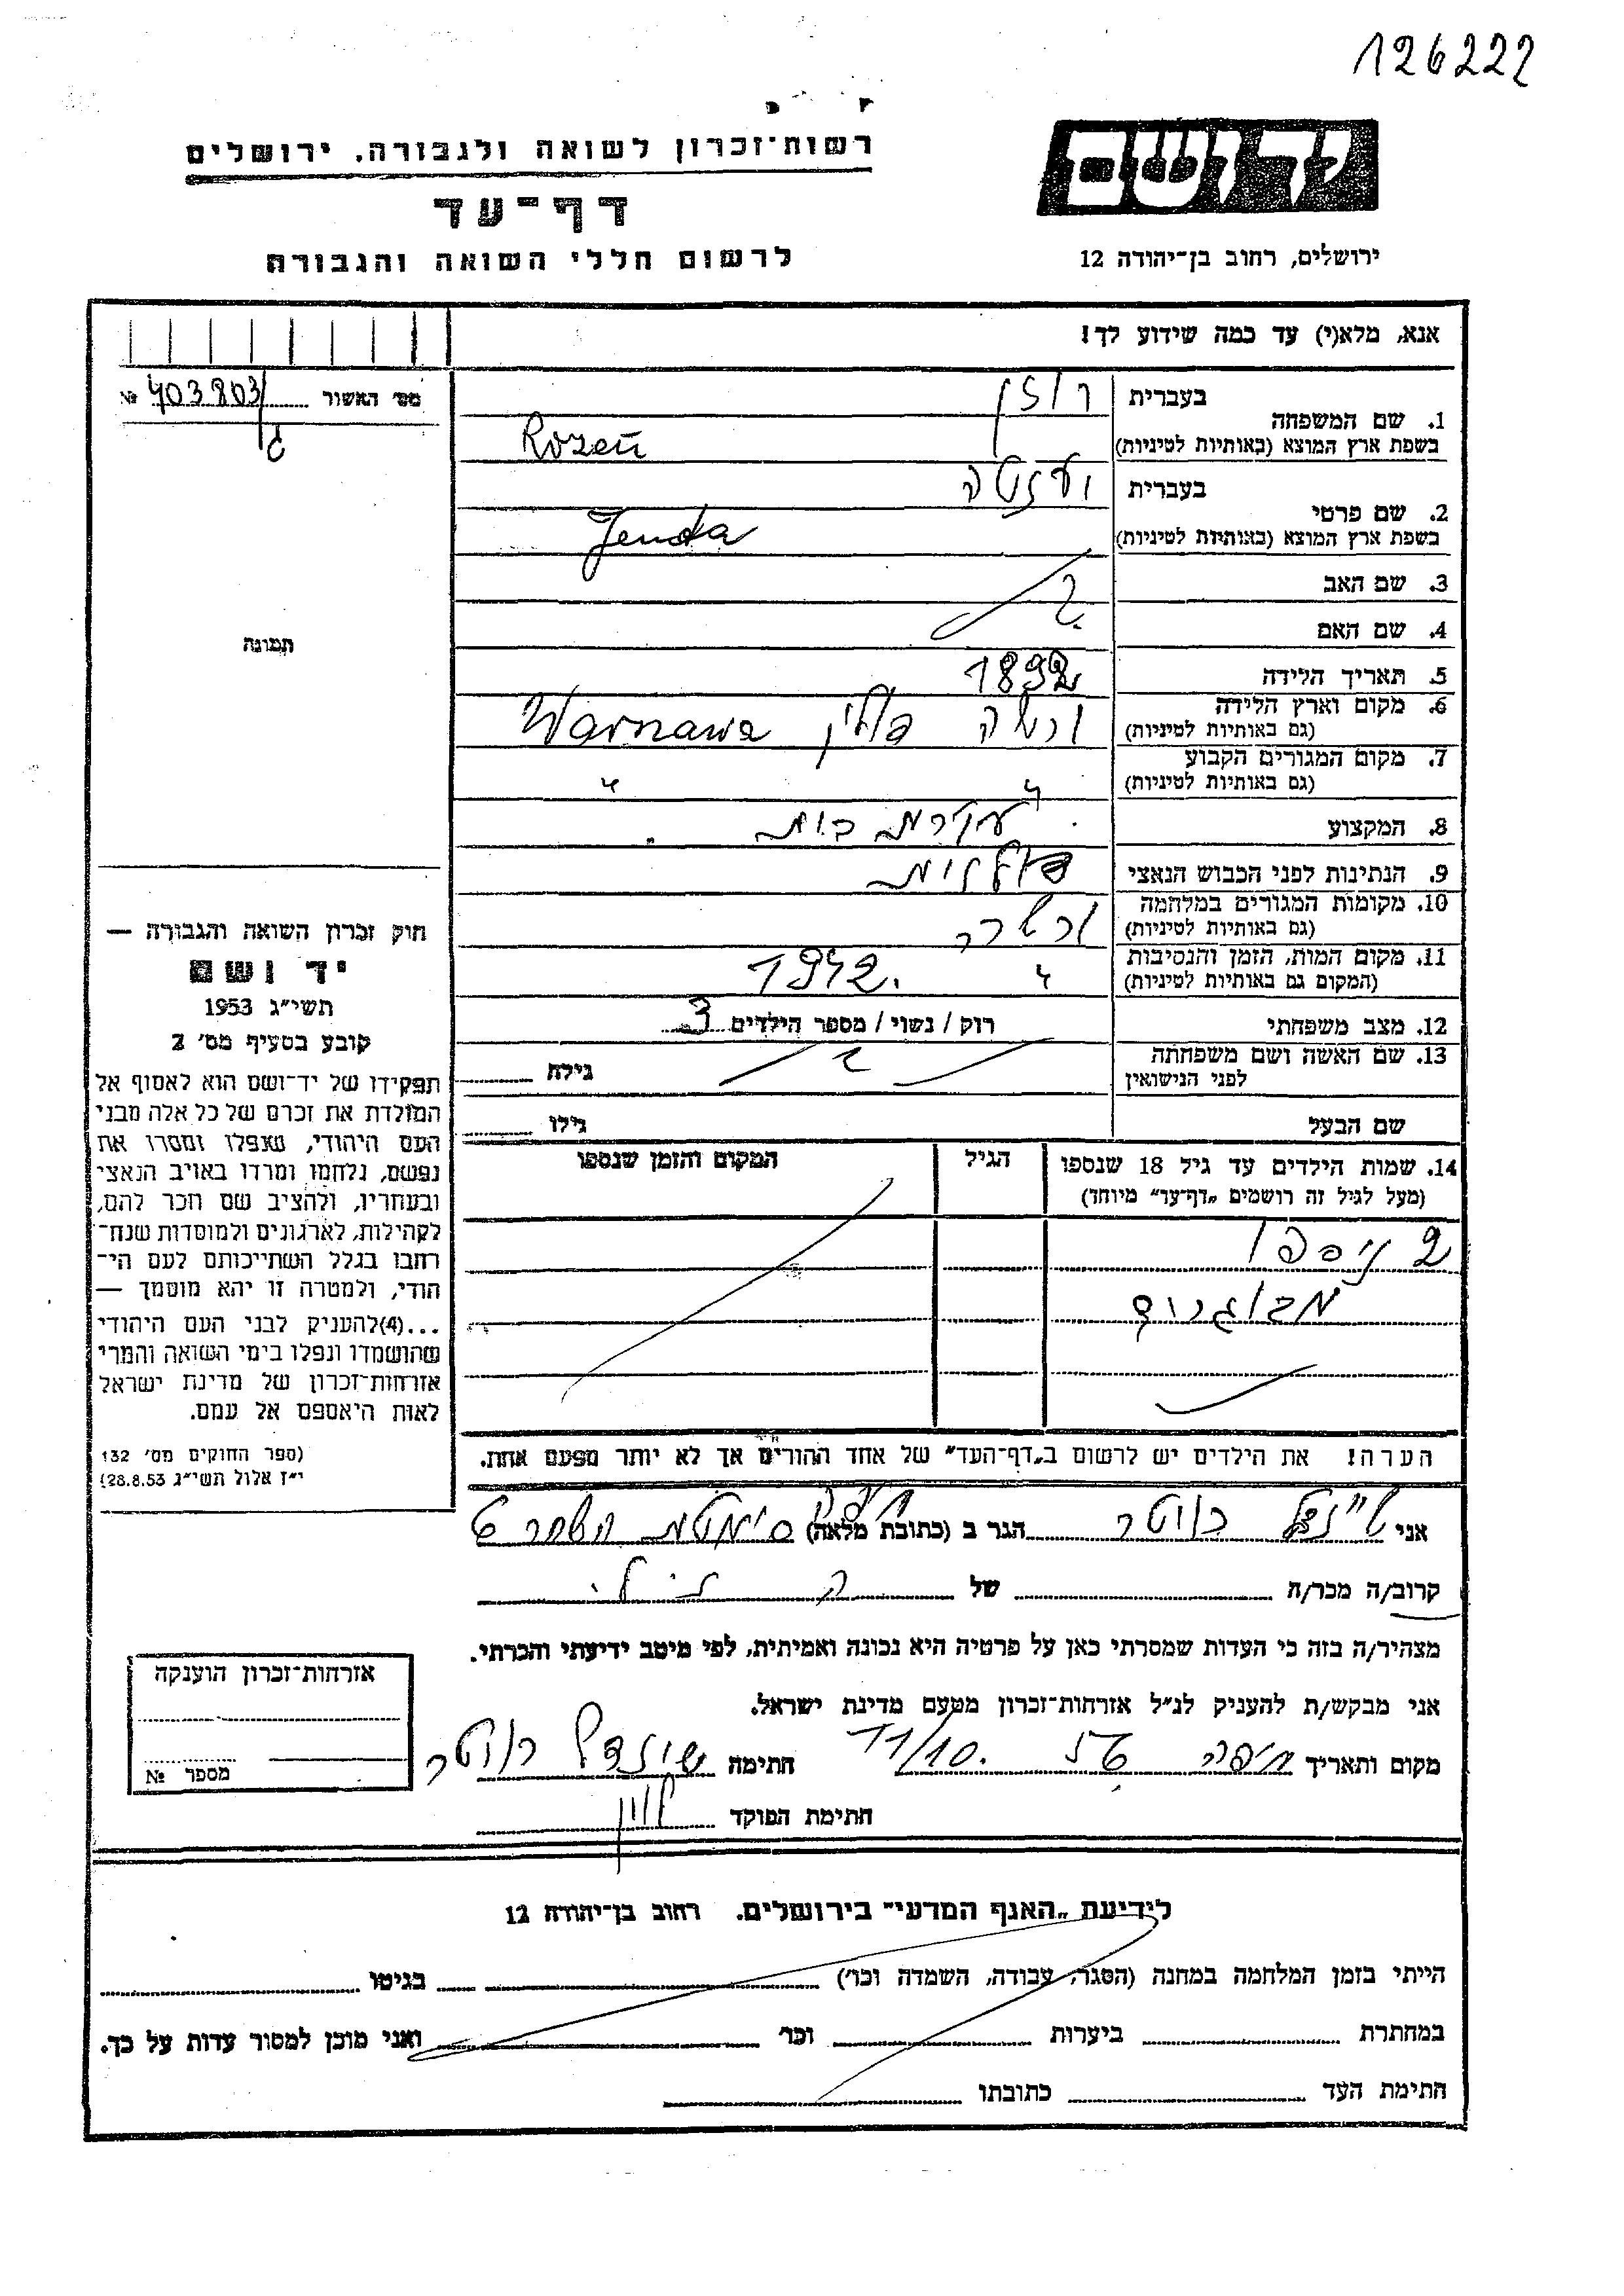 126222
רשות־זכרון לשואה ולגבורה, ירושלים
דף־עד
לרשום חללי השואה והגבורה
יד ושם
ירושלים, רחוב בן־יהודה 12
אנא, מלא(י) עד כמה שידוע לך!
מס׳ האשור 403803 №
1. שם המשפחה
בעברית רוזן
בשפת ארץ המוצא (באותיות לטיניות) Rozen
2. שם פרטי
בעברית
בשפת ארץ המוצא (באותיות לטיניות) Jenta
3. שם האב
4. שם האם
5. תאריך הלידה 1892
6. מקום וארץ הלידה ורשה פולין Warszawa
(גם באותיות לטיניות)
7. מקום המגורים הקבוע " "
(גם באותיות לטיניות)
8. המקצוע עקרת בית
9. הנתינות לפני הכבוש הנאצי פולנית
10. מקומות המגורים במלחמה ורשה
(גם באותיות לטיניות)
11. מקום המות, הזמן והנסיבות " 1942.
(המקום גם באותיות לטיניות)
12. מצב משפחתי רוק / נשוי / מספר הילדים 3
13. שם האשה ושם משפחתה
לפני הנישואין
גילה
שם הבעל
גילו
14. שמות הילדים עד גיל 18 שנספו
(מעל לגיל זה רושמים „דף־עד״ מיוחד)
הגיל
המקום והזמן שנספו
2 ניספו
מבוגרים
הערה! את הילדים יש לרשום ב„דף־העד״ של אחד ההורים אך לא יותר מפעם אחת.
תמונה
חוק זכרון השואה והגבורה —
יד ושם
תשי״ג 1953
קובע בסעיף מס׳ 2
תפקידו של יד־ושם הוא לאסוף אל
המולדת את זכרם של כל אלה מבני
העם היהודי, שנפלו ומסרו את
נפשם, נלחמו ומרדו באויב הנאצי
ובעוזריו, ולהציב שם וזכר להם,
לקהילות, לארגונים ולמוסדות שנח־
רבו בגלל השתייכותם לעם הי־
הודי, ולמטרה זו יהא מוסמך —
...(4) להעניק לבני העם היהודי
שהושמדו ונפלו בימי השואה והמרי
אזרחות־זכרון של מדינת ישראל
לאות היאספם אל עמם.
(ספר החוקים מס׳ 132
י״ז אלול תשי״ג 28.8.53)
אני הגר ב (כתובת מלאה) חיפה סימטת השחר 6
קרוב/ה מכר/ה של
מצהיר/ה בזה כי העדות שמסרתי כאן על פרטיה היא נכונה ואמיתית, לפי מיטב ידיעתי והכרתי.
אני מבקש/ת להעניק לנ״ל אזרחות־זכרון מטעם מדינת ישראל.
מקום ותאריך חיפה 11/10. חתימה
חתימת הפוקד
אזרחות־זכרון הוענקה
מספר №
לידיעת „האגף המדעי״ בירושלים. רחוב בן־יהודה 12
הייתי בזמן המלחמה במחנה (הסגר, עבודה, השמדה וכו׳) בגיטו
במחתרת ביערות וכו׳ ואני מוכן למסור עדות על כך.
חתימת העד כתובתו